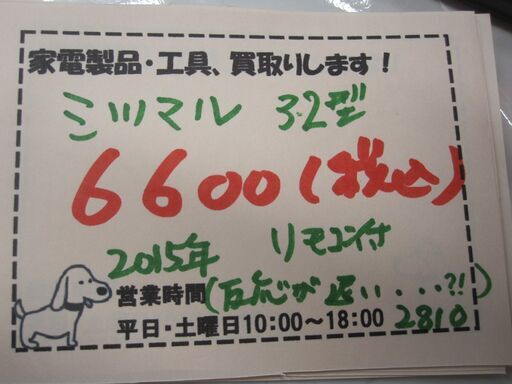 家電製品・工具、買取りします!
ミツマル 32型
6600(税込)
2015年 リモコン付
営業時間(反応が遅い...?!)
平日・土曜日10:00~18:00 2810